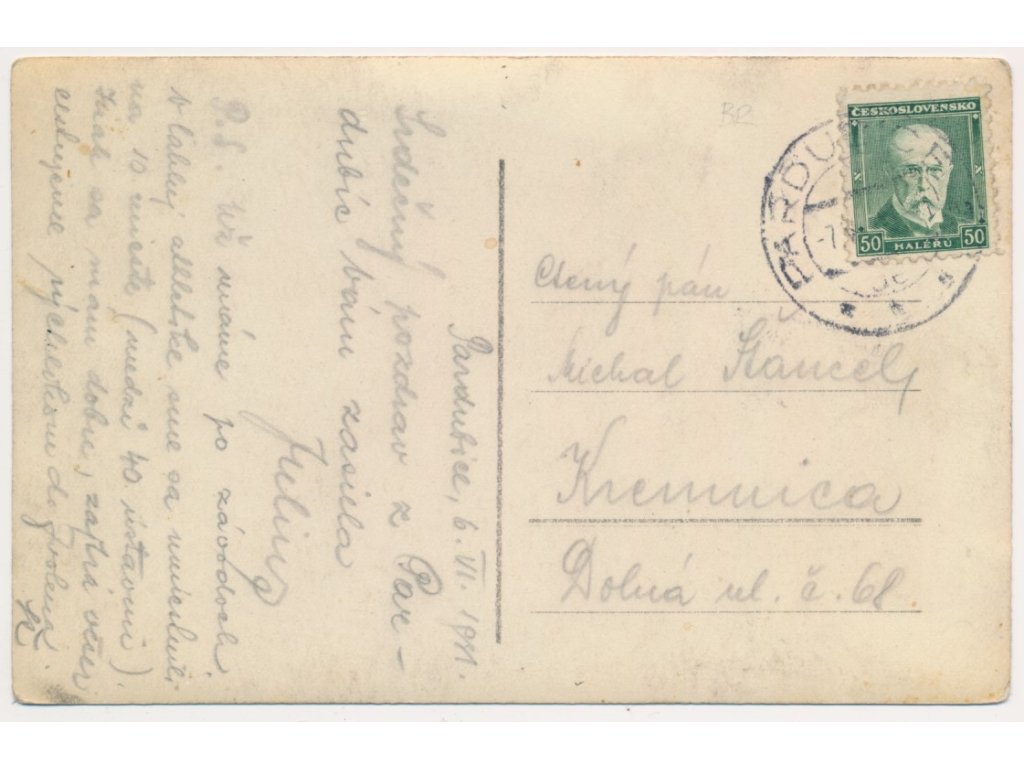 Pardubice, 6. VI. 1931.
Srdečný pozdrav z Par-
dubíc vám zasiela
Julius
P.S. Už máme po závodoch,
v ľahkej atletike sme sa umiestnili
na 10 mieste (medzi 40 ústavmi)
Inak sa mám dobre, zajtra večer
rýchlikom do Zvolena.
BR
ČESKOSLOVENSKO
50 HALÉŘŮ 50
PARDU
-7.
Ctený pán
Michal Štancel,
Kremnica
Dolná ul. č. 68